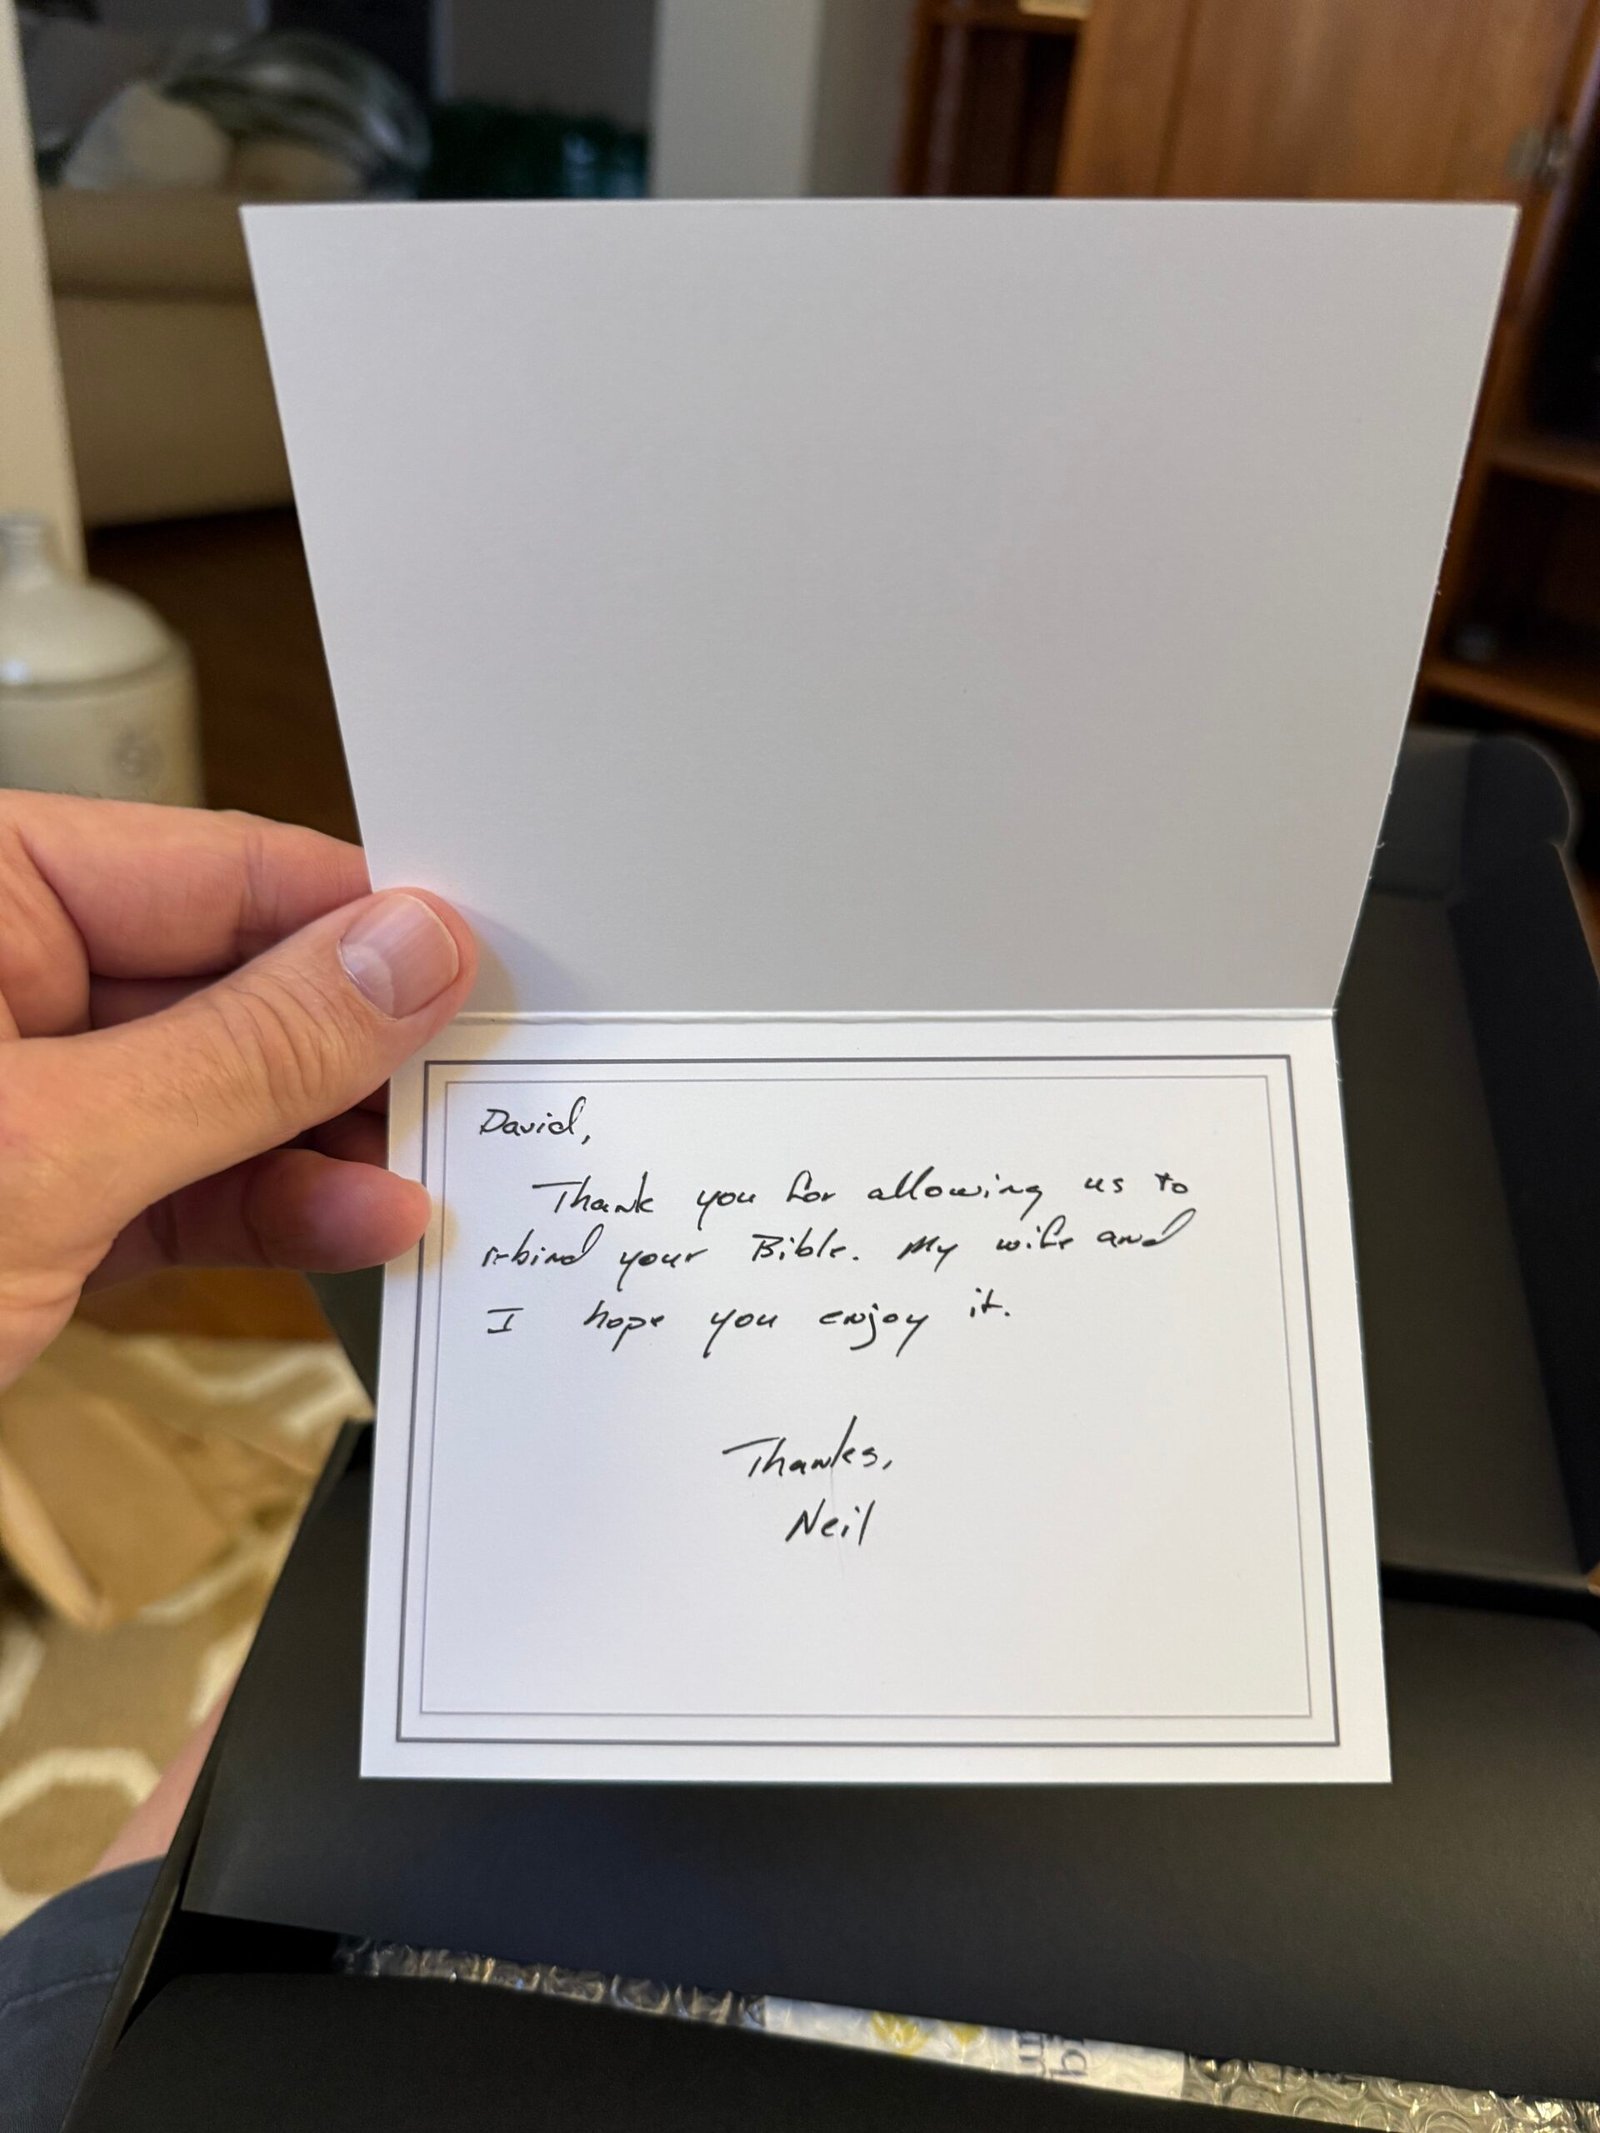 David,
Thank you for allowing us to
rebind your Bible. My wife and
I hope you enjoy it.
Thanks,
Neil